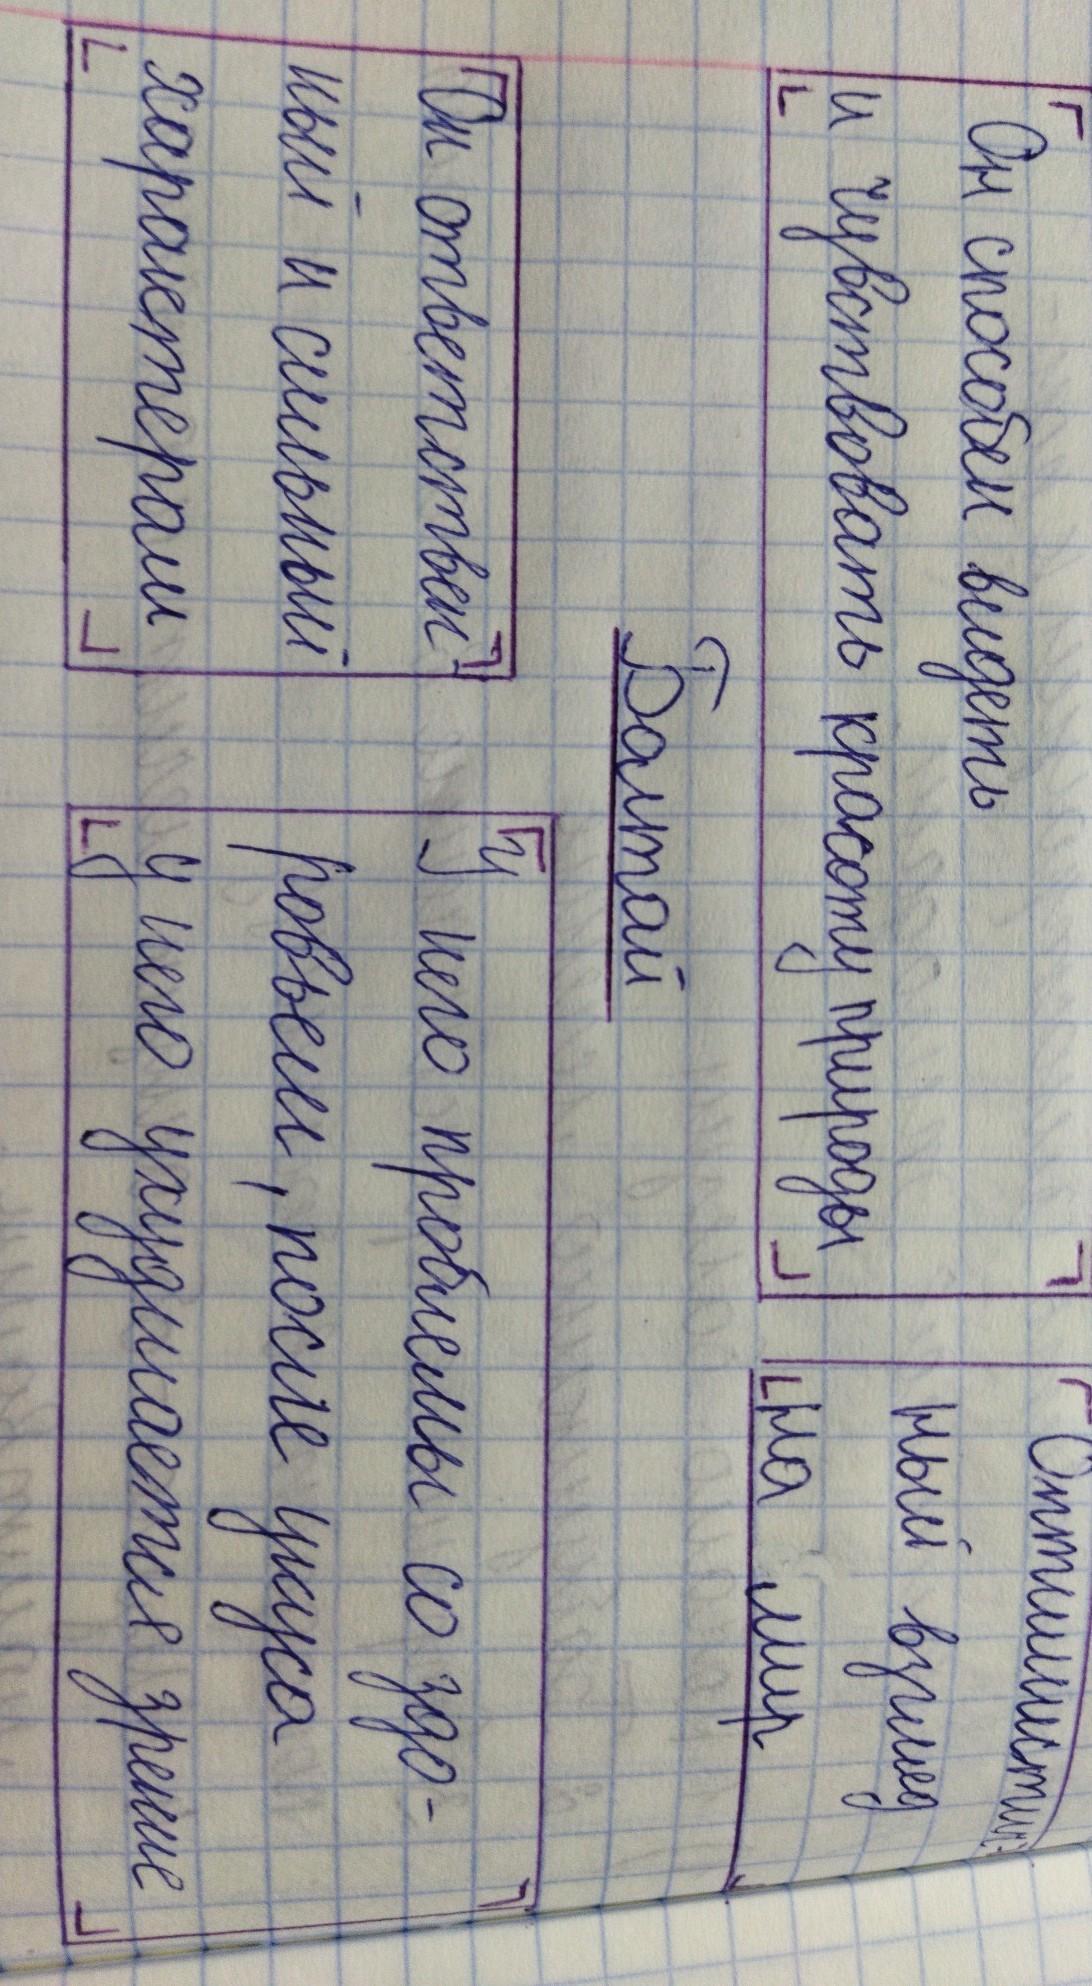 Он способен видеть
и чувствовать красоту природы
Оптимистич-
ный взгляд
на мир
Балтай
Он ответствен
ный и сильный
характером
У него проблемы со здо-
ровьем, после укуса
у него ухудшается зрение